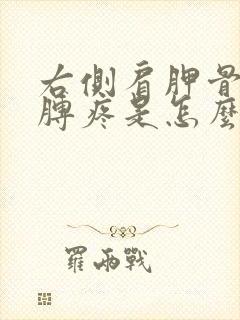 右側肩胛骨
膊疼是怎麼
羅兩戰